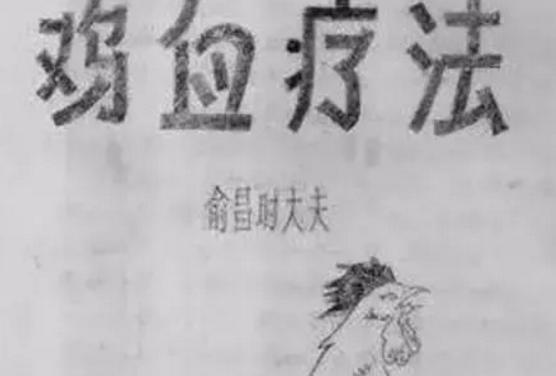 鸡血疗法
俞昌时大夫